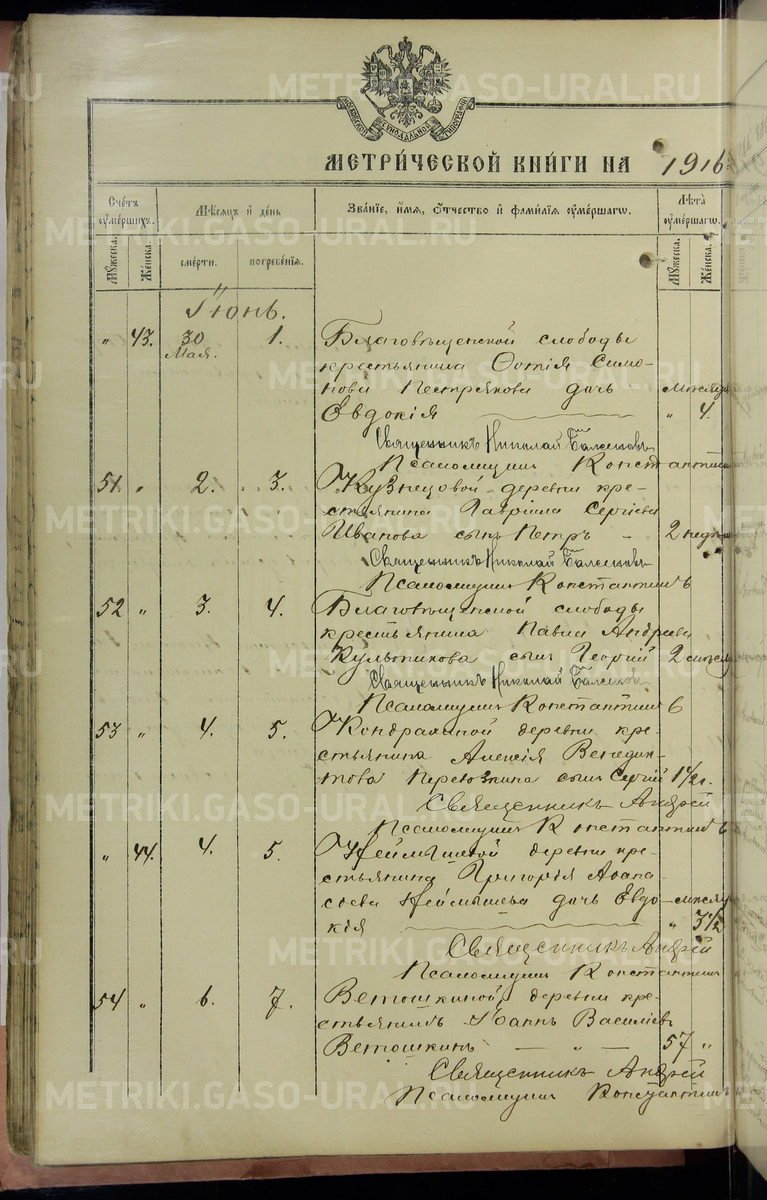 МЕТРИ́ЧЕСКОЙ КНИ́ГИ НА 1916
Сче́тъ ᲂу҆ме́ршихъ.
Му́жеска.
Же́нска.
Мѣ́сяцъ и҆ де́нь
сме́рти.
погребе́нїѧ.
Зва́нїе, и҆́мѧ, Ѻ҆́тчество и҆ фами́лїѧ ᲂу҆ме́ршагѡ.
Лѣ́та ᲂу҆ме́ршагѡ.
Му́жеска.
Же́нска.
Іюнь.
" 43. 30 Мая. 1. Благовѣщенской слободы
крестьянина Фотія Симо-
нова Пестрякова дочь мѣсяц
Евдокія " 4.
Священникъ Николай
Псаломщикъ Константин
51 " 2. 3. Кузнецовой деревни кре-
стьянина Гавріила Сергіева
Иванова сынъ Петръ - 2 недѣли
Священникъ Николай
Псаломщикъ Константинъ
52 " 3. 4. Благовѣщенской слободы
крестьянина Павла Андреева
сынъ Георгій 2 мѣся
Священникъ Николай
Псаломщикъ Константинъ
53 " 4. 5. Кондрахиной деревни кре-
стьянина Алексія Венедик-
това сынъ Сергій 1 1/2 г.
Священникъ Андрей
Псаломщикъ Константинъ
" 44. 4. 5. Неймышевой деревни кре-
стьянина Григорія Аѳана-
сьева Неймышева дочь Евдо- мѣсяц
кія " 3 1/2
Священникъ Андрей
Псаломщикъ Константин
54 " 6. 7. Ветошкиной деревни кре-
стьянинъ Іоаннъ Василіевъ
Ветошкинъ — " — 57 "
Священникъ Андрей
Псаломщикъ Константин
METRIKI.GASO-URAL.RU